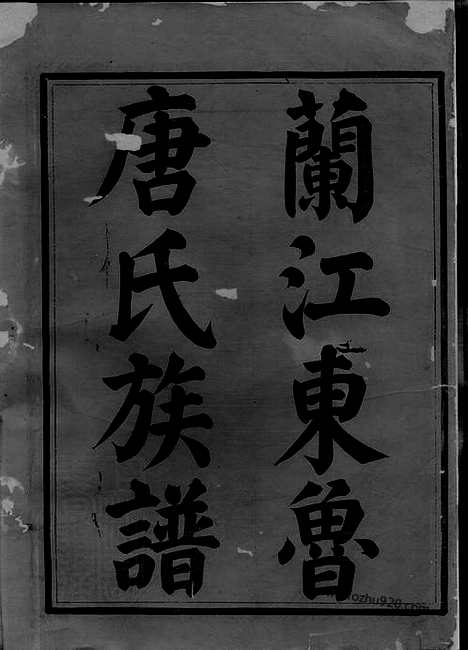 蘭江東魯
唐氏族譜
ozhu920.com